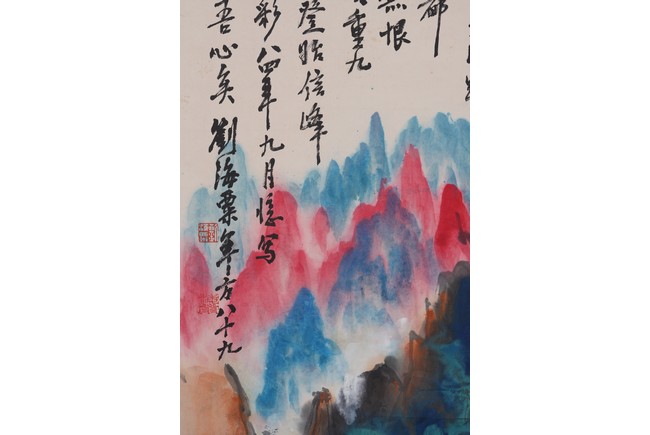 都
無恨
重九
登始信峰
彩八四年九月憶寫
吾心矣劉海粟年方八十九